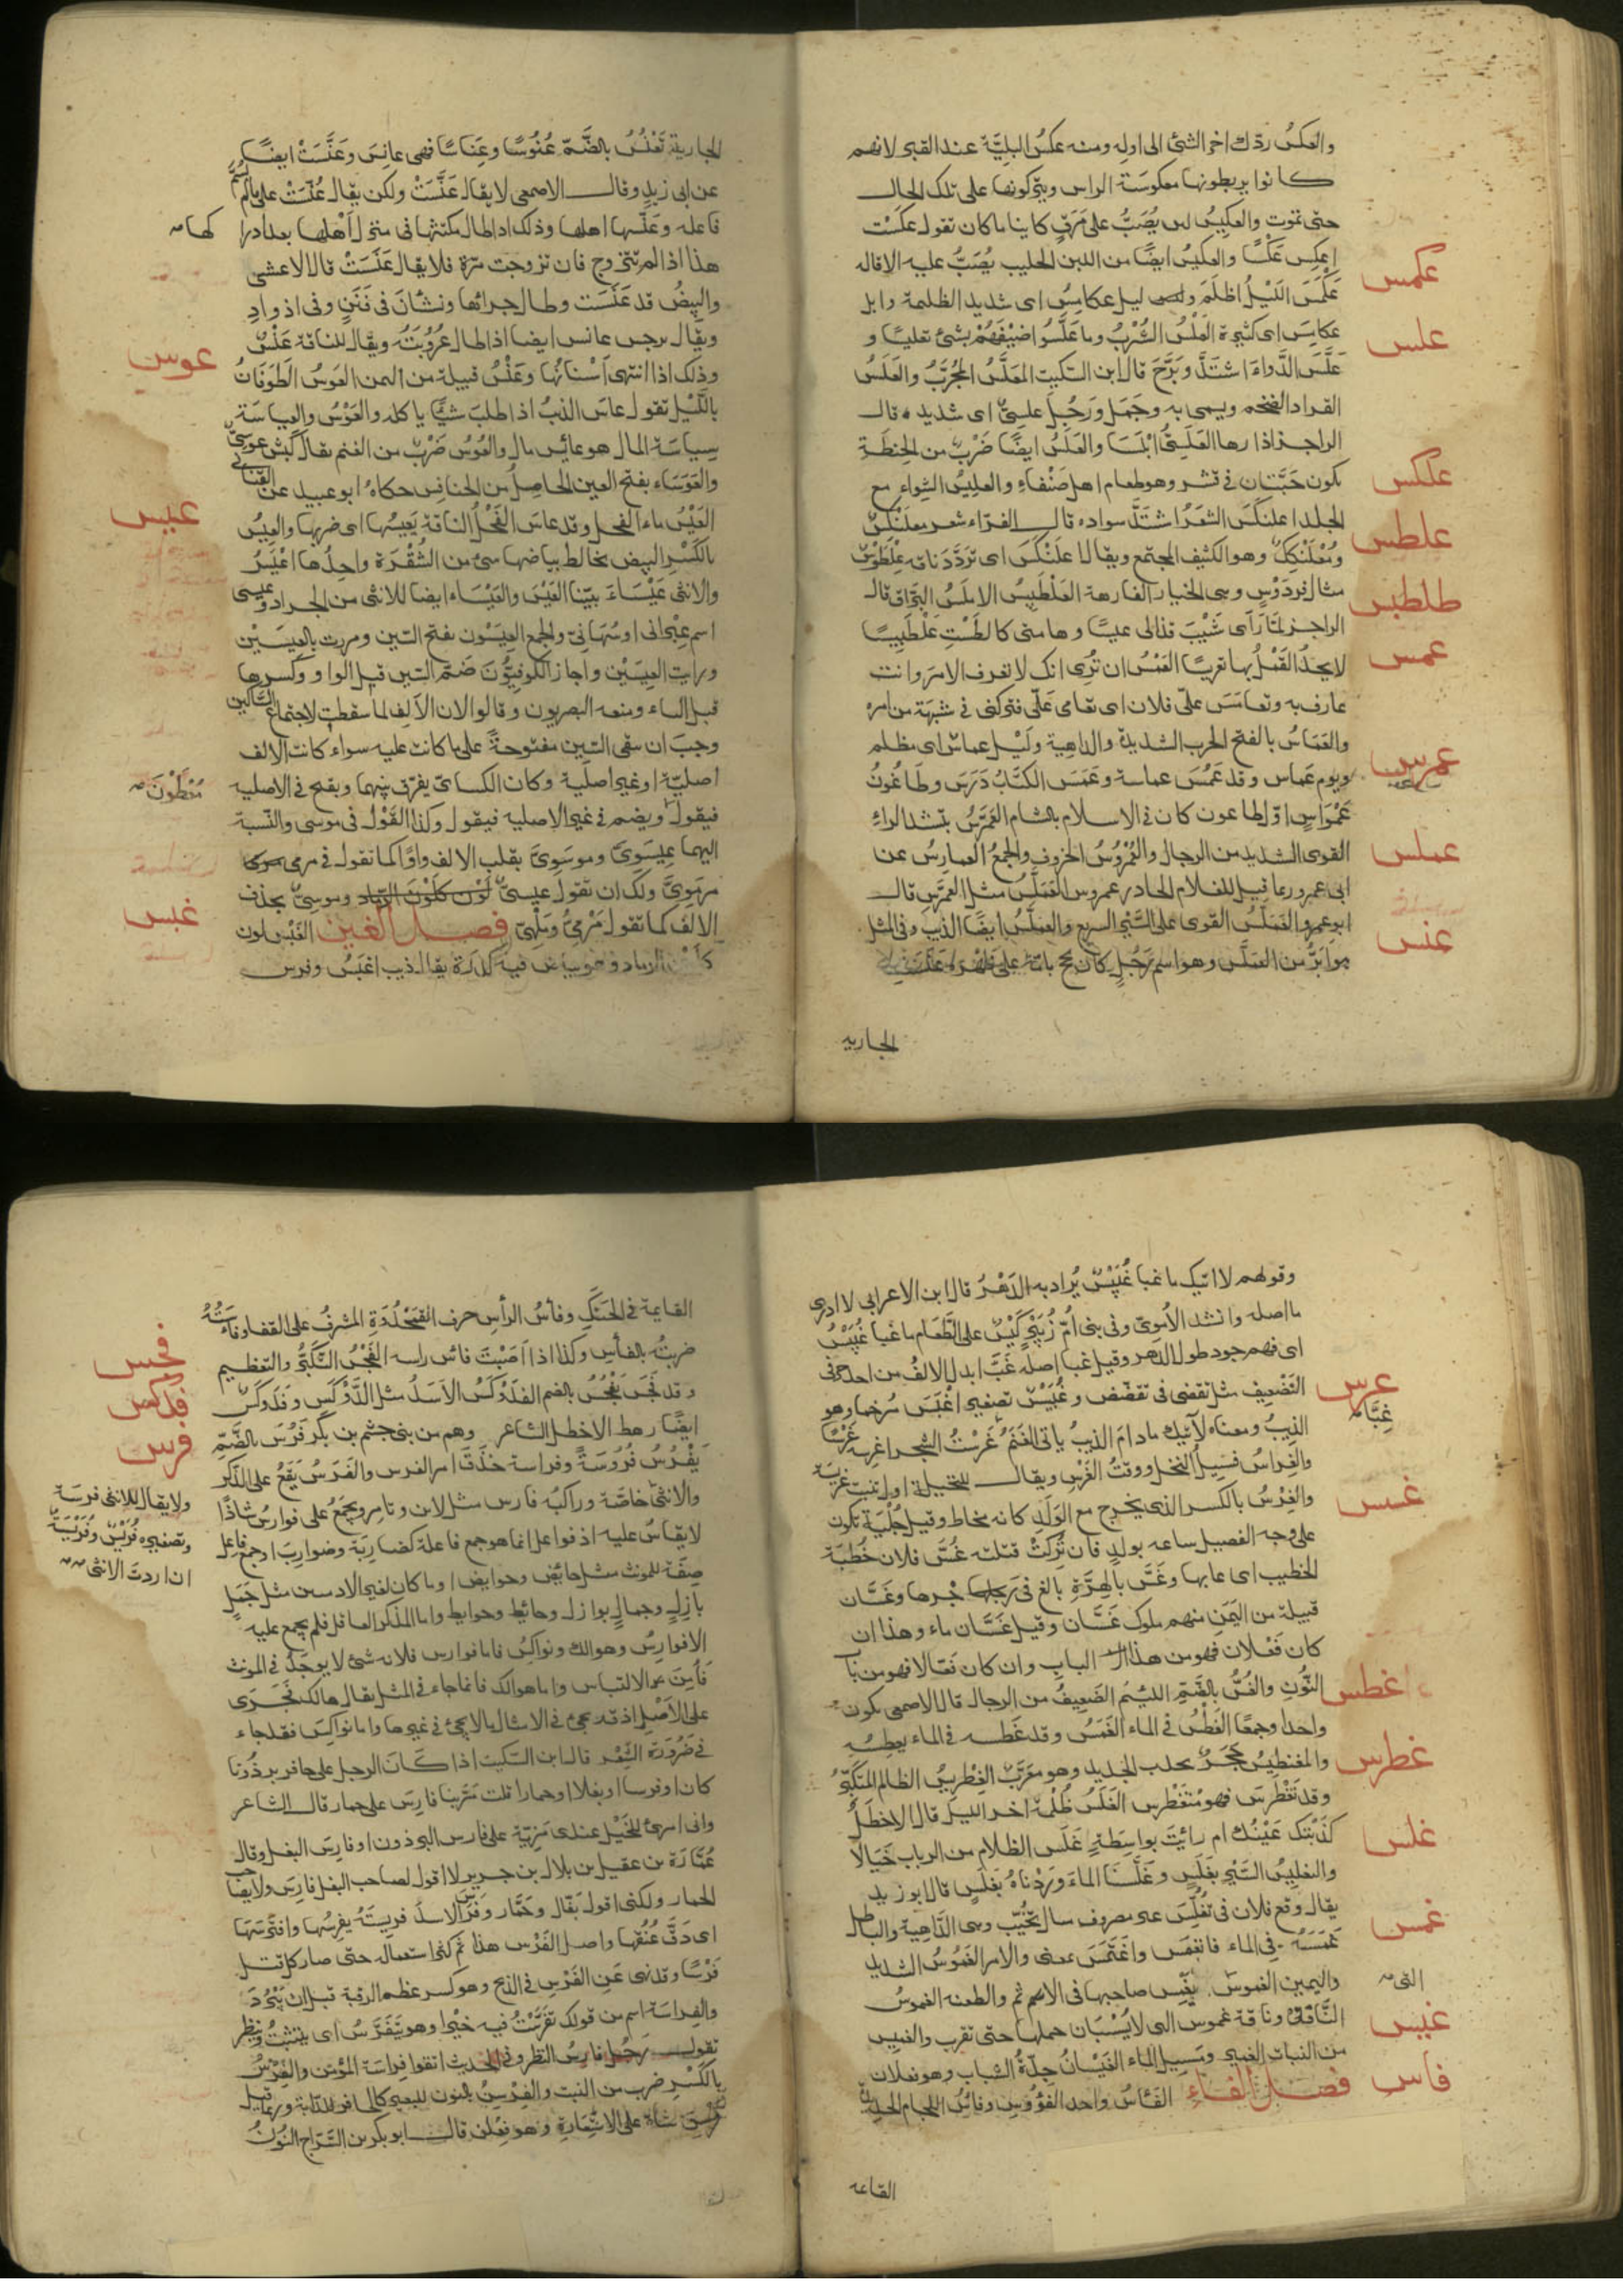 والعكس ردك اخر الشئ الى اوله ومنه عكس البليَّة عند القبر لانهم
كانوا يربطونها معكوسة الراس ويتركونها على تلك الحال
حتى تموت والعكيس لبن يُصَبُّ على مَرَقٍ كاينا ما كان تقول عكست
اعكِس عَكْسًا والعكيس ايضًا من اللبن الحليب يُصَبُّ عليه الاقاله
عكمس
عَكْمَسَ اللَيْلُ اظلَمَ وليل عكامِسٌ اى شديد الظلمة وابل
علس
عكامِسَ اى كثيرة العَلْسُ الشُرْبُ وما عَلَّسُوا ضَيْفَهُمْ بشئ تعليسًا و
عَلَّسَ الدَّواءَ اشتَدَّ وبَرَّحَ قال ابن السّكيت المعَلَّسُ المُجَرَّبُ والعَلَسُ
القراد الضخم وبه سمى وجَمَل ورَجُل علسِىٌّ اى شديد قال
الراجز اذا رءها العَلَسِىُّ ابْلَسَا والعَلَسُ ايضًا ضَرْبٌ من الحِنطَةِ
تكون حَبَّتان فى قشر وهو طعام اهل صَنْعاءِ والعليسُ الشواء مع
علكس
الجلد اعلنكَسَ الشعَرُ اشتَدَّ سواده قال الفرّاء شعر معلَنْكِسٌ
علطس
ومُعْلَنْكِكٌ وهو الكثيف المجتمع ويقال اعلَنْكَسَ اى تردَّدَ ناقه عِلْطَوْسٌ
طلطبس
مثال فِردَوْسٍ وهى الخيار الفارهة العَلْطَبِيسُ الاملَسُ البَرّاق قال
الراجز لمّا رَأى شَيْبَ قذالى عيسًا وهامتى كالطَسْتِ عَلْطَبِيسًا
عمس
لا يجدُ القَمْلُ بها تعريسًا العَمْسُ ان تُرِى انك لا تعرف الامر وانت
عارف به وتعامَسَ علىّ فلان اى تعامى عَلَىّ فتركنى فى شبهة من امره
والعَمَاسُ بالفتح الحرب الشديدة والداهية ولَيْل عماسٌ اى مظلم
ويوم عَماس وقد عَمُسَ عماسة وعَمَسَ الكتَابُ دَرَسَ وطاعُونُ
عمرس
عَمْوَاسٍ اوّل طاعون كان فى الاسلام بالشام العَمَرَّسُ بتشد الراءِ
القوى الشديد من الرجال والعُمْرُوسُ الخروف والجمعُ العمارِسُ عن
عملس
ابى عمرو وربما قيل للغلام الحادر عمروس العَمَلَّسُ مثل العَمَرّسِ قال
ابو عمرو العَمَلَّسُ القوى على السَّيْرِ السريع والعملّسُ ايضًا الذيب وفى المثل
عنس
هو ابَرُّ من العَمَلَّسِ وهو اسم رَجُلٍ كان يحج بامّه على ظهْره عَنَسَتِ
الجاريه
الجارية تَعْنُسُ بالضَّمّ عُنُوسًا وعِنَاسًا فهى عانِسَ وعَنَّسَتْ ايضًا
عن ابى زيد وقال الاصمعى لا يقال عَنَّسَتْ ولكن يقال عُنّسَتْ على ما لم يسمّ
فاعله وعَنّسها اهلها وذلك اذا طال مكثها فى منزل اَهْلِها بعد ادرا
كهامه
هذا اذا لم تتزوج فان تزوجت مرّة فلا يقال عَنَسَتْ قال الاعشى
والبيضُ قد عَنَسَت وطال جرائها ونشأنَ فى فَنَنٍ وفى اذوادِ
ويقال لرجل عانس ايضا اذا طال عزُوْبَتُه ويقال للناقة عَنْسٌ
عوس
وذلك اذا انتهى اَسْنانُها وعَنْسُ قبيلة من اليمن العَوسُ الطَوَفَانُ
باللَّيْل تقول عاسَ الذيبُ اذا طلبَ شيئًا ياكله والعَوْسُ والعِياسَة
سِياسَة المال هو عائِس مال والعُوسُ ضَرْبٌ من الغنم يقال كَبْش عوسِىٌّ
والعَوَسَاء بفتح العين الحامِلُ من الخنافِس حكاهُ ابو عبيد عن القنانى
عيس
العَيْسُ ماءُ الفحل وقد عاسَ الفَحْلُ الناقة يَعِيسُها اى ضربها والعِيسُ
بالكَسْر البيض يخالط بياضها شئ من الشُقْرَة واحِدُها اعْيَسُ
والانثى عَيْسَاءَ بيّنا العَيَسَ والعَيْسَاء ايضا للانثى من الجراد وعيسى
اسم عِبْرانى او سُرْيانِىّ والجمع العِيسَون بفتح السّين ومررت بالعِيسَيْنِ
ورايت العِيسَيْن واجاز الكوفِيّونَ ضَمّ السّين قبل الواو وكسرها
قبل الياء ومنعه البصريون وقالوا لان الاَلِف لما سقطت لاجتماع السَّاكنين
وجبَ ان تبقى السّين مفتوحةً على ما كانت عليه سواء كانت الالف
اصليّة او غير اصلِيّة وكان الكسائىّ يفرّق بينهما ويفتح فى الاصليه
مُعْطَوْنَ
فيقول ويضم فى غير الاصليه فيقول وكذا القَوْلُ فى موسى والنّسبة
اليهما عِيسَوِىٌّ وموسَوِىٌّ بقلب الالف واوًا كما تقول فى مرمى
مرمَوِىٌّ ولك ان تقول عيسىٌّ لَوْن كلَوْن الرّماد وموسىٌّ بحذف
غبس
الالف كما تقول مَرْمِىٌّ ومَلْهِىّ فصل الغين الغَبَس لون
الرماد وهو بياض فيه كُدْرَة يقال ذيب اغبَسُ وفرس
وقولهم لا اتيك ما غبا غُبَيْسٌ يُرادبه الدَهْرُ قال ابن الاعرابى لا ادرى
ما اصله وانشد الاُموِىّ وفى بنى اُمِّ زُبَيْرٍ كَيْسٌ على الطَّعام ما غبا غُبَيْسُ
اى فيهم جود طول الدهر وقيل غبا اصله غَبَّ ابدل الالف من احد حرفى
غرس
غِبًّا
التضعيف مثل تقضى فى تقضّض وغُبَيْسٌ تصغير اغْبَسَ مُرَخما وهو
الذيبُ ومعناه لا آتيك مادامَ الذيبُ ياتى الغَنَمَ غَرَسْتُ الشجر اغرسه غَرْسًا
والغِراسُ فَسِيلُ النخل ووقتُ الغَرْسِ ويقال للنخيلة اول تنبت غرِيسَة
غسس
والغِرْسُ بالكسر الذى يخرج مع الوَلَدِ كانه مخاط وقيل جُلَيْدة تكون
على وجه الفصيل ساعه يولد فان تُرِكَتْ قتلته غُسَّ فلان خُطْبَة
الخطيب اى عابها وغَسَّ بالهِرَّةِ بالغ فى زجرها وغَسَّان
قبيلة من اليَمَنِ منهم ملوك غَسَّان وقيل غَسَّان ماء وهذا ان
كان فَعْلان فهو من هذا الباب وان كان فَعّالا فهو من باب
اغطس
النُّون والغُسُّ بالضَّمِّ اللَئِيم الضَعِيفُ من الرجال قال الاصمعى يكون
واحدا وجمعًا الغَطْسُ فى الماء الغَمْسُ وقد غَطسه فى الماء يغطِسُه
غطرس
والمغنطِيسُ حَجَرٌ يجذب الحديد وهو معَرَّبٌ الغِطْرِيسُ الظالم المتكَبّرُ
وقد تَغَطْرَسَ فهو مُتَغَطْرِس الغَلَسُ ظُلْمَة اخر الليل قال الاخطَلُ
غلس
كَذَبَتك عَيْنُك ام رايْتَ بواسِطةٍ غَلَسَ الظلام من الرباب خَيَالًا
والتغليسُ السَّيْر بغَلَسٍ وغَلَّسْنا الماءَ وَرَدْناهُ بغَلَسٍ قال ابو زيد
يقال وقع فلان فى تُغُلِّسَ غير مصروف مثال تُخُيِّبَ وهى الدَّاهِية والباطل
غمس
غَمَسَهُ فى الماء فانغمَس واغتمَسَ بمعنى والامر الغَمُوسُ الشديد
التى
واليمين الغموسَ تغمِس صاحبها فى الاثم ثم والطعنه الغموسُ
غيس
النَّافذةُ وناقة غموس التى لا يُسْتَبَان حملها حتى تقرب والغميس
من النبات الغمير ومسيل الماء الغَيْسانُ حِدّةُ الشباب وهو فعلان
فاس
فصل الفاء الفَأسُ واحد الفؤوسِ وفأسُ اللجام الحديدة
القاعه
القايمة فى الحَنَكِ وفأسُ الرأس حرف القَمَحْدُوَةِ المشرِفُ على القفا وفأسْتُهُ
ضربتُه بالفأس وكذا اذا اَصَبْتَ فاس راسه الفَجْسُ التَّكَبُّر والتعظيم
فجس
فدكس
وقد فَجَسَ يَفْجُسُ بالضم الفَدَوْكَسُ الاَسَدُ مثل الدَّوْكَسِ وفَدَوْكَسٌ
ايضًا رهط الاخطل الشاعر وهم من بنى جشم بن بكر فَرُسَ بالضَّمّ
فرس
يَفْرُسُ فُرُوسَةً وفراسة حَذَقَ امر الفرس والفَرَسُ يَقَعُ على الذَكَرِ
ولا يقال للانثى فرسَة
وتصغيره فُرَيْسٌ وفُرَيْسَةٌ
ان اردت الانثى
والانثى خاصّة وراكبُه فارس مثل لابن وتامِرٍ ويجمَعُ على فوارِسُ شاذًا
لا يقاسُ عليه اذ فواعل انما هو جمع فاعلة كضارِبَة وضوارِبَ او جمع فاعل
صِفة للمونث مثل حائِض وحوايض او ما كان لغير الادميين مثل جَمَلٍ
بازِلٍ وجِمالٍ بوازل وحائِط وحوايط واما المذكر العاقل فلم يجمع عليه
الا فوارِسُ وهوالك ونواكِسُ فاما فوارس فلانه شئ لا يوجَدُ فى المونث
فأمِنَ الالتباس واما هوالك فانما جاء فى المثل يقال هالك فجرَى
على الاَصْل اذ قد يجئ فى الامثال ما لا يجئ فى غيرها واما نواكِسَ فقد جاء
فى ضَرُورَة الشِعر قال ابن السّكيت اذا كَانَ الرجل على حافر برذَونا
كان او فرسا او بغلا او حمارا قلت مَرّبنا فارِسَ على حمار قال الشاعر
وانى امرؤ للخَيْلِ عندى مَزِيّة على فارس البرذون او فارِس البغل وقال
عُمَارَة بن عقيل بن بلال بن جرير لا اقول لصاحب البغل فارِسَ ولا لصاحب
الحمار ولكنى اقول بَغّال وحَمّار وفَرَسَ الاسدُ فريسَتَهُ يفرِسُها وافتَرَسَها
اى دَقَّ عُنُقَها واصل الفَرْس هذا ثم كثر استعماله حتى صار كل قتل
فَرْسًا وقد نهى عَنِ الفَرْسِ فى الذبح وهو كسر عظم الرقبة قبل ان يَبْرُدَ
والفِراسَة اسم من قولك تفَرَّسْتُ فيه خيْرا وهو يتَفَرَّسُ اى يتثبّتُ وينظر
تقول رَجُل فارِسُ النظر وفى الحديث اتقوا فراسَة المؤمن والفِرْسُ
بالكَسْر ضرب من النبت والفِرْسِنُ بالنون للبعير كالحافر للدّابة وربما قيل
فِرْسِنُ شاة على الاستعارةِ وهو فِعْلِن قال ابو بكر بن السَّرّاج النُونُ